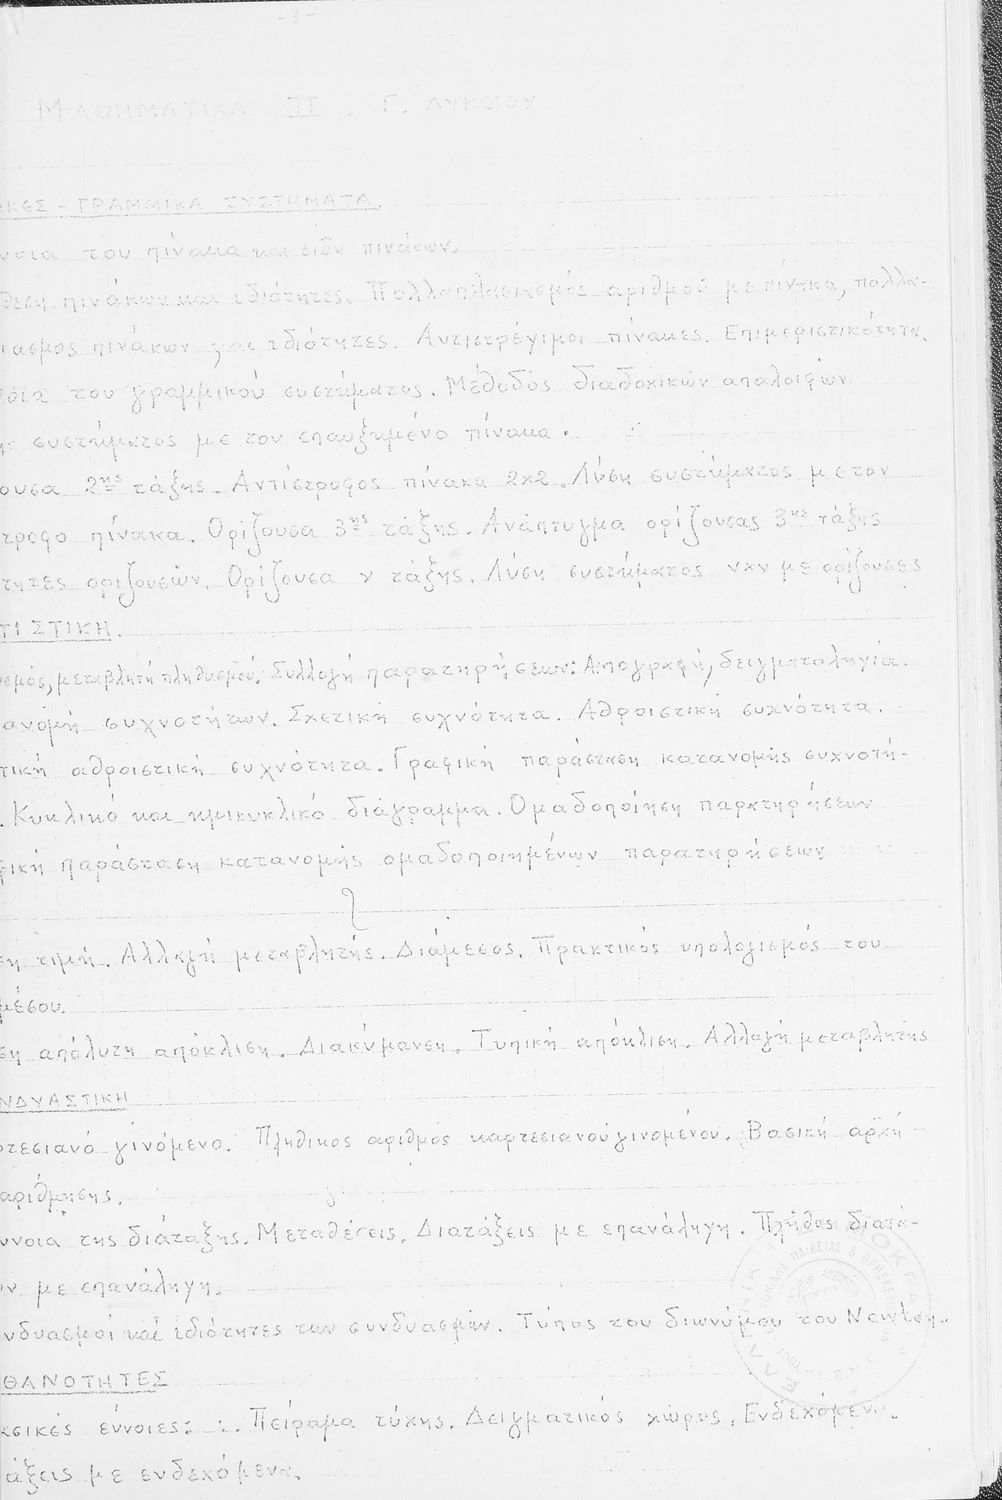 -3-
ΜΑΘΗΜΑΤΙΚΑ ΙΙ. Γ. ΛΥΚΕΙΟΥ
ΑΚΕΣ - ΓΡΑΜΜΙΚΑ ΣΥΣΤΗΜΑΤΑ.
νοια του πίνακα και είδη πινάκων.
θεση πινάκων και ιδιότητες. Πολλαπλασιασμός αριθμού με πίνακα, πολλα-
ιασμος πινάκων και ιδιότητες. Αντιστρέψιμοι πίνακες. Επιμεριστικότητα.
του γραμμικού συστήματος. Μέθοδος διαδοχικών απαλοιφών
συστήματος με τον επαυξημένο πίνακα.
ουσα 2ης τάξης. Αντίστροφος πίνακα 2x2. Λύση συστήματος με τον
τροφο πίνακα. Ορίζουσα 3ης τάξης. Ανάπτυγμα ορίζουσας 3ης τάξης
τητες οριζουσών. Ορίζουσα ν τάξης. Λύση συστήματος νxν με ορίζουσες
ΤΙΣΤΙΚΗ.
σμός, μεταβλητή πληθυσμού. Συλλογή παρατηρήσεων: Απογραφή, δειγματοληψία.
ανομή συχνοτήτων. Σχετική συχνότητα. Αθροιστική συχνότητα.
τική αθροιστική συχνότητα. Γραφική παράσταση κατανομής συχνοτή-
. Κυκλικό και ημικυκλικό διάγραμμα. Ομαδοποίηση παρατηρήσεων
φική παράσταση κατανομής ομαδοποιημένων παρατηρήσεων
ση τιμή. Αλλαγή μεταβλητής. Διάμεσος. Πρακτικός υπολογισμός του
μέσου.
ση απόλυτη απόκλιση. Διακύμανση. Τυπική απόκλιση. Αλλαγή μεταβλητής
ΝΔΥΑΣΤΙΚΗ
ρτεσιανό γινόμενο. Πληθικος αριθμός καρτεσιανού γινομένου. Βασική αρχή
αρίθμησης.
ννοια της διάταξης. Μεταθέσεις. Διατάξεις με επανάληψη. Πλήθος διατά-
ων με επανάληψη.
νδυασμοί και ιδιότητες των συνδυασμών. Τύπος του διωνύμου του Newton.
ΘΑΝΟΤΗΤΕΣ
ασικές έννοιες: Πείραμα τύχης. Δειγματικός χώρος. Ενδεχόμενα.
άξεις με ενδεχόμενα.